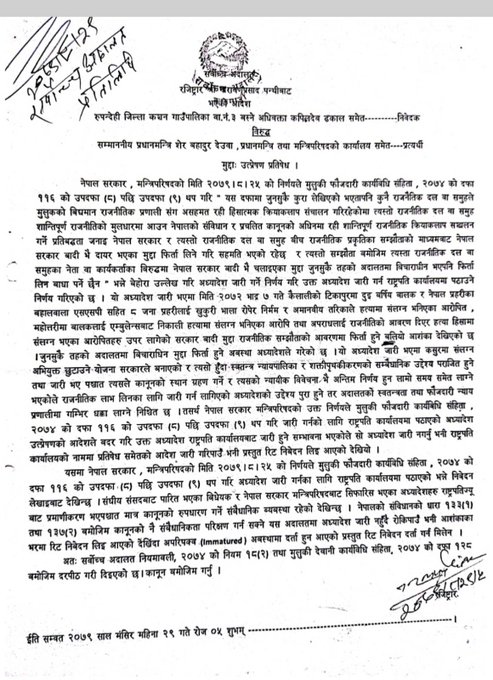 सर्वोच्च अदालत
भएको आदेश
रुपन्देही जिल्ला कञ्चन गाउँपालिका वा.नं.३ बस्ने अधिवक्ता कपिलदेव ढकाल समेत----------निवेदक
विरुद्ध
सम्माननीय प्रधानमन्त्रि शेर बहादुर देउवा ,प्रधानमन्त्रि तथा मन्त्रिपरिषदको कार्यालय समेत----प्रत्यर्थी
मुद्दाः उत्प्रेषण प्रतिषेध ।
नेपाल सरकार , मन्त्रिपरिषदको मिति २०७९।८।२५ को निर्णयले मुलुकी फौजदारी कार्यविधि संहिता, २०७४ को दफा
११६ को उपदफा (८) पछि उपदफा (९) थप गरि " यस दफामा जुनसुकै कुरा लेखिएको भएतापनि कुनै राजनैतिक दल वा समुहले
मुलुकको बिद्यमान राजनीतिक प्रणाली संग असहमत रही हिंसात्मक क्रियाकलाप संचालन गरिरहेकोमा त्यस्तो राजनीतिक दल वा समुह
शान्तिपूर्ण राजनीतिको मुलधारमा आउन नेपालको संविधान र प्रचलित कानूनको अधिनमा रही शान्तिपूर्ण राजनीतिक क्रियाकलाप सञ्चालन
गर्ने प्रतिबद्धता जनाइ नेपाल सरकार र त्यस्तो राजनीतिक दल वा समुह बीच राजनीतिक प्रकृतिका सम्झौताको माध्यमबाट नेपाल
सरकार बादी भै दायर भएका मुद्दा फिर्ता लिने गरि सहमति भएको रहेछ र त्यस्तो सम्झौता बमोजिम त्यस्ता राजनीतिक दल वा
समुहका नेता वा कार्यकर्ताका बिरुद्धमा नेपाल सरकार बादी भै चलाइएका मुद्दा जुनसुकै तहको अदालतमा बिचाराधीन भएपनि फिर्ता
लिन बाधा पर्ने छैन " भन्ने बेहोरा उल्लेख गरि अध्यादेश जारी गर्ने गरि उक्त अध्यादेश जारी गर्न राष्ट्रपति कार्यालयमा पठाउने
निर्णय गरिएको छ । यो अध्यादेश जारी भएमा मिति २०७२ भाद्र ७ गते कैलालीको टिकापुरमा दुइ बर्षिय बालक र नेपाल प्रहरीका
बहालवाला एसएसपी सहित ८ जना प्रहरीलाई खुकुरी भाला रोपेर निर्मम र अमानवीय तरिकाले हत्यामा संलग्न भनिएका आरोपित ,
महोत्तरीमा बालकलाई एम्बुलेन्सबाट निकाली हत्यामा संलग्न भनिएका आरोपि तथा अपराधलाई राजनीतिको आवरण दिएर हत्या हिंसामा
संलग्न भएका आरोपितहरु उपर लागेको सरकार बादी मुद्दा राजनीतिक सम्झौताको आवरणमा फिर्ता हुने बलियो आशंका देखिएको छ
।जुनसुकै तहको अदालतमा बिचाराधिन मुद्दा फिर्ता हुने अबस्था अध्यादेशले गरेको छ ।यो अध्यादेश जारी भएमा कसुरमा संलग्न
अभियुक्त छुटाउने योजना सरकारले बनाएको र त्यसो हुँदा स्वतन्त्र न्यायपालिका र शक्तीपृथकीकरणको सम्बैधानिक उद्देश्य पराजित हुने
तथा जारी भए पश्चात त्यसले कानूनको स्थान ग्रहण गर्ने र त्यसको न्यायिक विवेचना भै अन्तिम निर्णय हुन लामो समय समेत लाग्ने
भएकोले राजनितिक लाभ लिनका लागि जारी गर्न लागिएको अध्यादेशको उद्देश्य पुरा हुने तर अदालतको स्वतन्त्रता तथा फौजदारी न्याय
प्रणालीमा गम्भिर धक्का लाग्ने निश्चित छ ।तसर्थ नेपाल सरकार मन्त्रिपरिषदको उक्त निर्णयले मुलुकी फौजदारी कार्यविधि संहिता ,
२०७४ को दफा ११६ को उपदफा (८) पछि उपदफा (९) थप गरि जारी गर्नको लागि राष्ट्रपति कार्यालयमा पठाएको अध्यादेश
उत्प्रेषणको आदेशले बदर गरि उक्त अध्यादेश राष्ट्रपति कार्यालयबाट जारी हुने सम्भावना भएकोले सो अध्यादेश जारी नगर्नु भनी राष्ट्रपति
कार्यालयको नाममा प्रतिषेध समेतको आदेश जारी गरिपाउँ भनी प्रस्तुत रिट निवेदन लिइ आएको देखियो ।
यसमा नेपाल सरकार , मन्त्रिपरिषदको मिति २०७९।८।२५ को निर्णयले मुलुकी फौजदारी कार्यविधि संहिता , २०७४ को
दफा ११६ को उपदफा (८) पछि उपदफा (९) थप गरि अध्यादेश जारी गर्नका लागि राष्ट्रपति कार्यालयमा पठाएको भन्ने निवेदन
लेखाइबाट देखिन्छ । संघीय संसदबाट पारित भएका बिधेयक र नेपाल सरकार मन्त्रिपरिषदबाट सिफारिस भएका अध्यादेशहरु राष्ट्रपतिज्यू
बाट प्रमाणीकरण भएपश्चात मात्र कानूनको रुपधारण गर्ने संबैधानिक व्यवस्था रहेको देखिन्छ । नेपालको संविधानको धारा १३३(१)
तथा १३७(२) बमोजिम कानूनको नै संबैधानिकता परिक्षण गर्न सक्ने यस अदालतमा अध्यादेश जारी नहुँदै रोकिपाउँ भनी आशंकाका
भरमा रिट निवेदन लिइ आएको देखिँदा अपरिपक्व (Immatured) अबस्थामा दर्ता हुन आएको प्रस्तुत रिट निवेदन दर्ता गर्न मिलेन ।
अतः सर्वोच्च अदालत नियमावली, २०७४ को नियम १८(२) तथा मुलुकी देवानी कार्यविधि संहिता, २०७४ को दफा १२८
बमोजिम दरपीठ गरी दिइएको छ।कानून बमोजिम गर्नु ।
रजिष्ट्रार
ईति सम्बत २०७९ साल मंसिर महिना २९ गते रोज ०५ शुभम् ------------------------------।